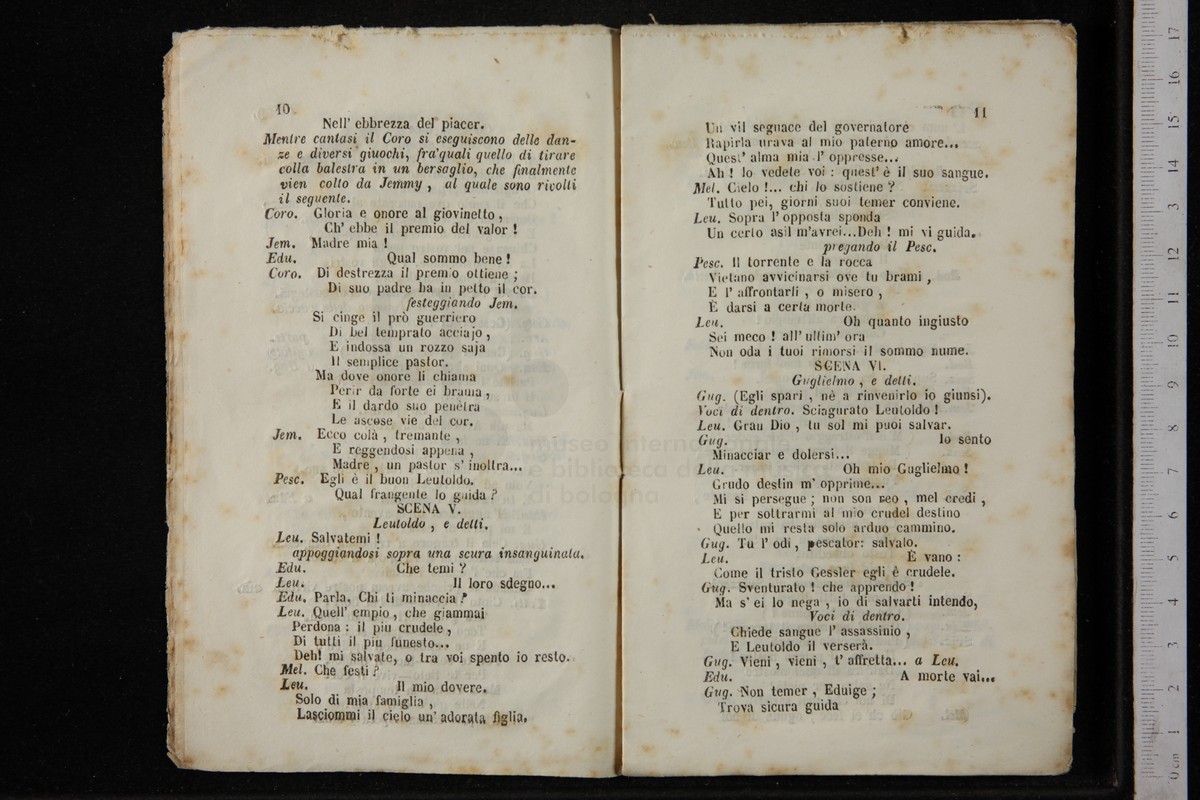 10
Nell' ebbrezza del piacer.
Mentre cantasi il Coro si eseguiscono delle dan-
ze e diversi giuochi, fra'quali quello di tirare
colla balestra in un bersaglio, che finalmente
vien colto da Jemmy , al quale sono rivolti
il seguente.
Coro. Gloria e onore al giovinetto ,
Ch' ebbe il premio del valor !
Jem. Madre mia !
Edu. Qual sommo bene !
Coro. Di destrezza il premio ottiene ;
Di suo padre ha in petto il cor.
festeggiando Jem.
Si cinge il prò guerriero
Di bel temprato acciajo ,
E indossa un rozzo saja
Il semplice pastor.
Ma dove onore li chiama
Perir da forte ei brama ,
E il dardo suo penètra
Le ascose vie del cor.
Jem. Ecco colà , tremante ,
E reggendosi appena ,
Madre , un pastor s' inoltra...
Pesc. Egli è il buon Leutoldo.
Qual frangente lo guida ?
SCENA V.
Leutoldo , e detti.
Leu. Salvatemi !
appoggiandosi sopra una scura insanguinata.
Edu. Che temi ?
Leu. Il loro sdegno...
Edu. Parla. Chi ti minaccia ?
Leu. Quell' empio , che giammai
Perdona : il piu crudele ,
Di tutti il piu funesto...
Deh! mi salvate, o tra voi spento io resto.
Mel. Che festi ?
Leu. Il mio dovere.
Solo di mia famiglia ,
Lasciommi il cielo un' adorata figlia.
11
Un vil seguace del governatore
Rapirla urava al mio paterno amore...
Quest' alma mia l' oppresse...
Ah ! lo vedete voi : quest' è il suo sangue.
Mel. Cielo !... chi lo sostiene ?
Tutto pei, giorni suoi temer conviene.
Leu. Sopra l' opposta sponda
Un certo asil m'avrei...Deh ! mi vi guida.
pregando il Pesc.
Pesc. Il torrente e la rocca
Vietano avvicinarsi ove tu brami ,
E l' affrontarli , o misero ,
È darsi a certa morte.
Leu. Oh quanto ingiusto
Sei meco ! all' ultim' ora
Non oda i tuoi rimorsi il sommo nume.
SCENA VI.
Guglielmo , e detti.
Gug. (Egli sparì , nè a rinvenirlo io giunsi).
Voci di dentro. Sciagurato Leutoldo !
Leu. Gran Dio , tu sol mi puoi salvar.
Gug. Io sento
Minacciar e dolersi...
Leu. Oh mio Guglielmo !
Crudo destin m' opprime...
Mi si persegue ; non son reo , mel credi ,
E per sottrarmi al mio crudel destino
Quello mi resta solo arduo cammino.
Gug. Tu l' odi , pescator: salvalo.
Leu. È vano :
Come il tristo Gessler egli è crudele.
Gug. Sventurato ! che apprendo !
Ma s' ei lo nega , io di salvarti intendo,
Voci di dentro.
Chiede sangue l' assassinio ,
E Leutoldo il verserà.
Gug. Vieni , vieni , t' affretta... a Leu.
Edu. A morte vai...
Gug. Non temer , Eduige ;
Trova sicura guida
museo internazionale
e biblioteca della musica
di bologna
0 cm 1 2 3 4 5 6 7 8 9 10 11 12 13 14 15 16 17